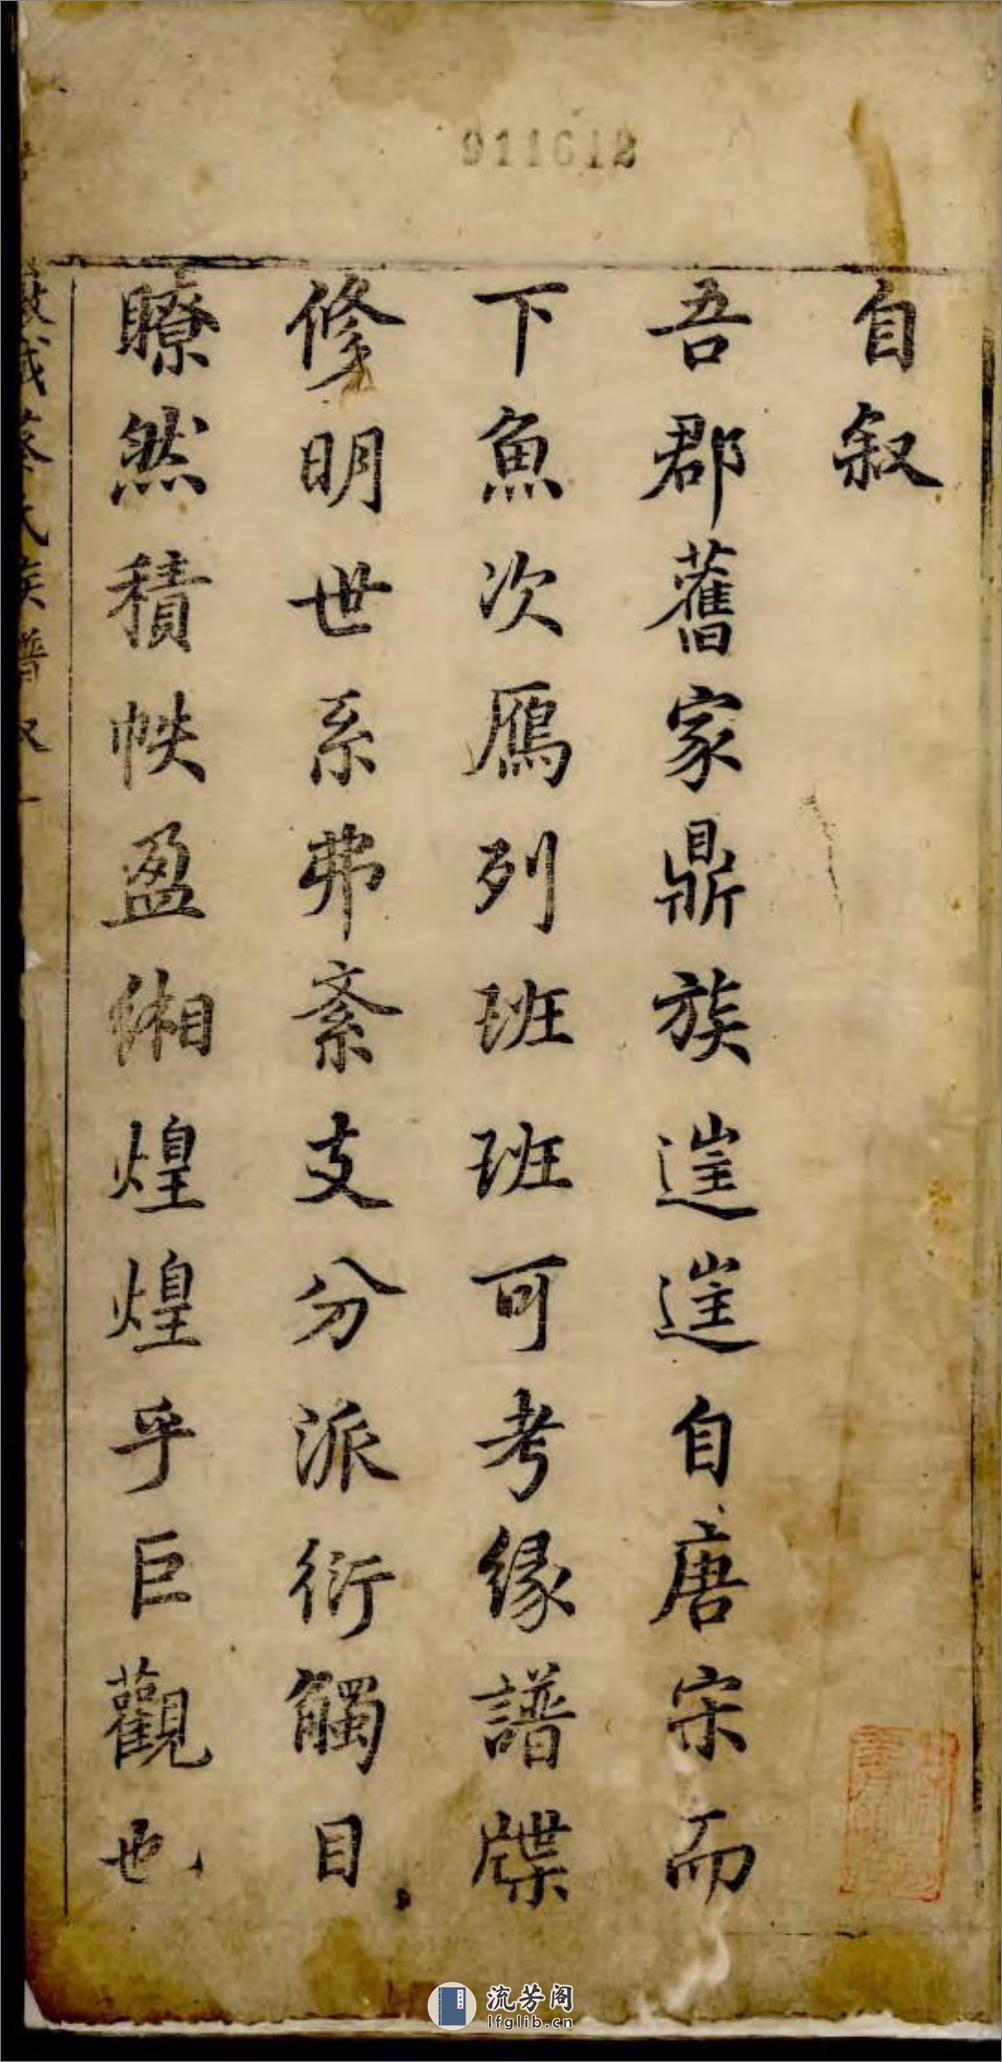 911612
自叙
吾郡舊家鼎族𨓏𨓏自唐宋而
下魚次鴈列班班可考緣譜牒
修明世系弗紊支分派衍觸目
瞭然積帙盈緗煌煌乎巨觀也
蔡氏族譜 叙 一
流芳阁
lfglib.cn